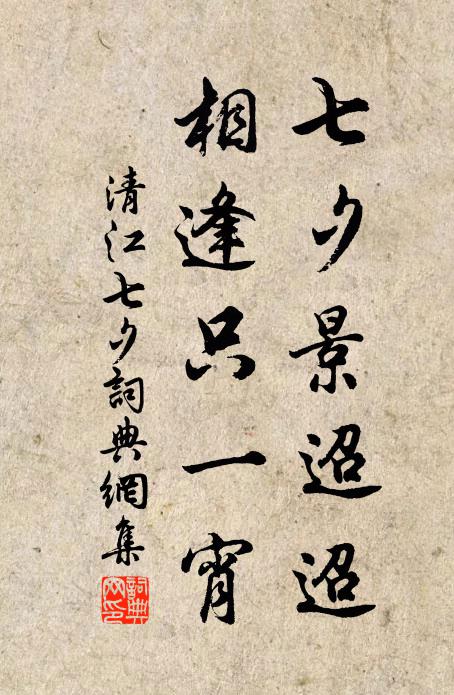 七夕景迢迢
相逢只一宵
清江七夕詞典網集
詞典网印